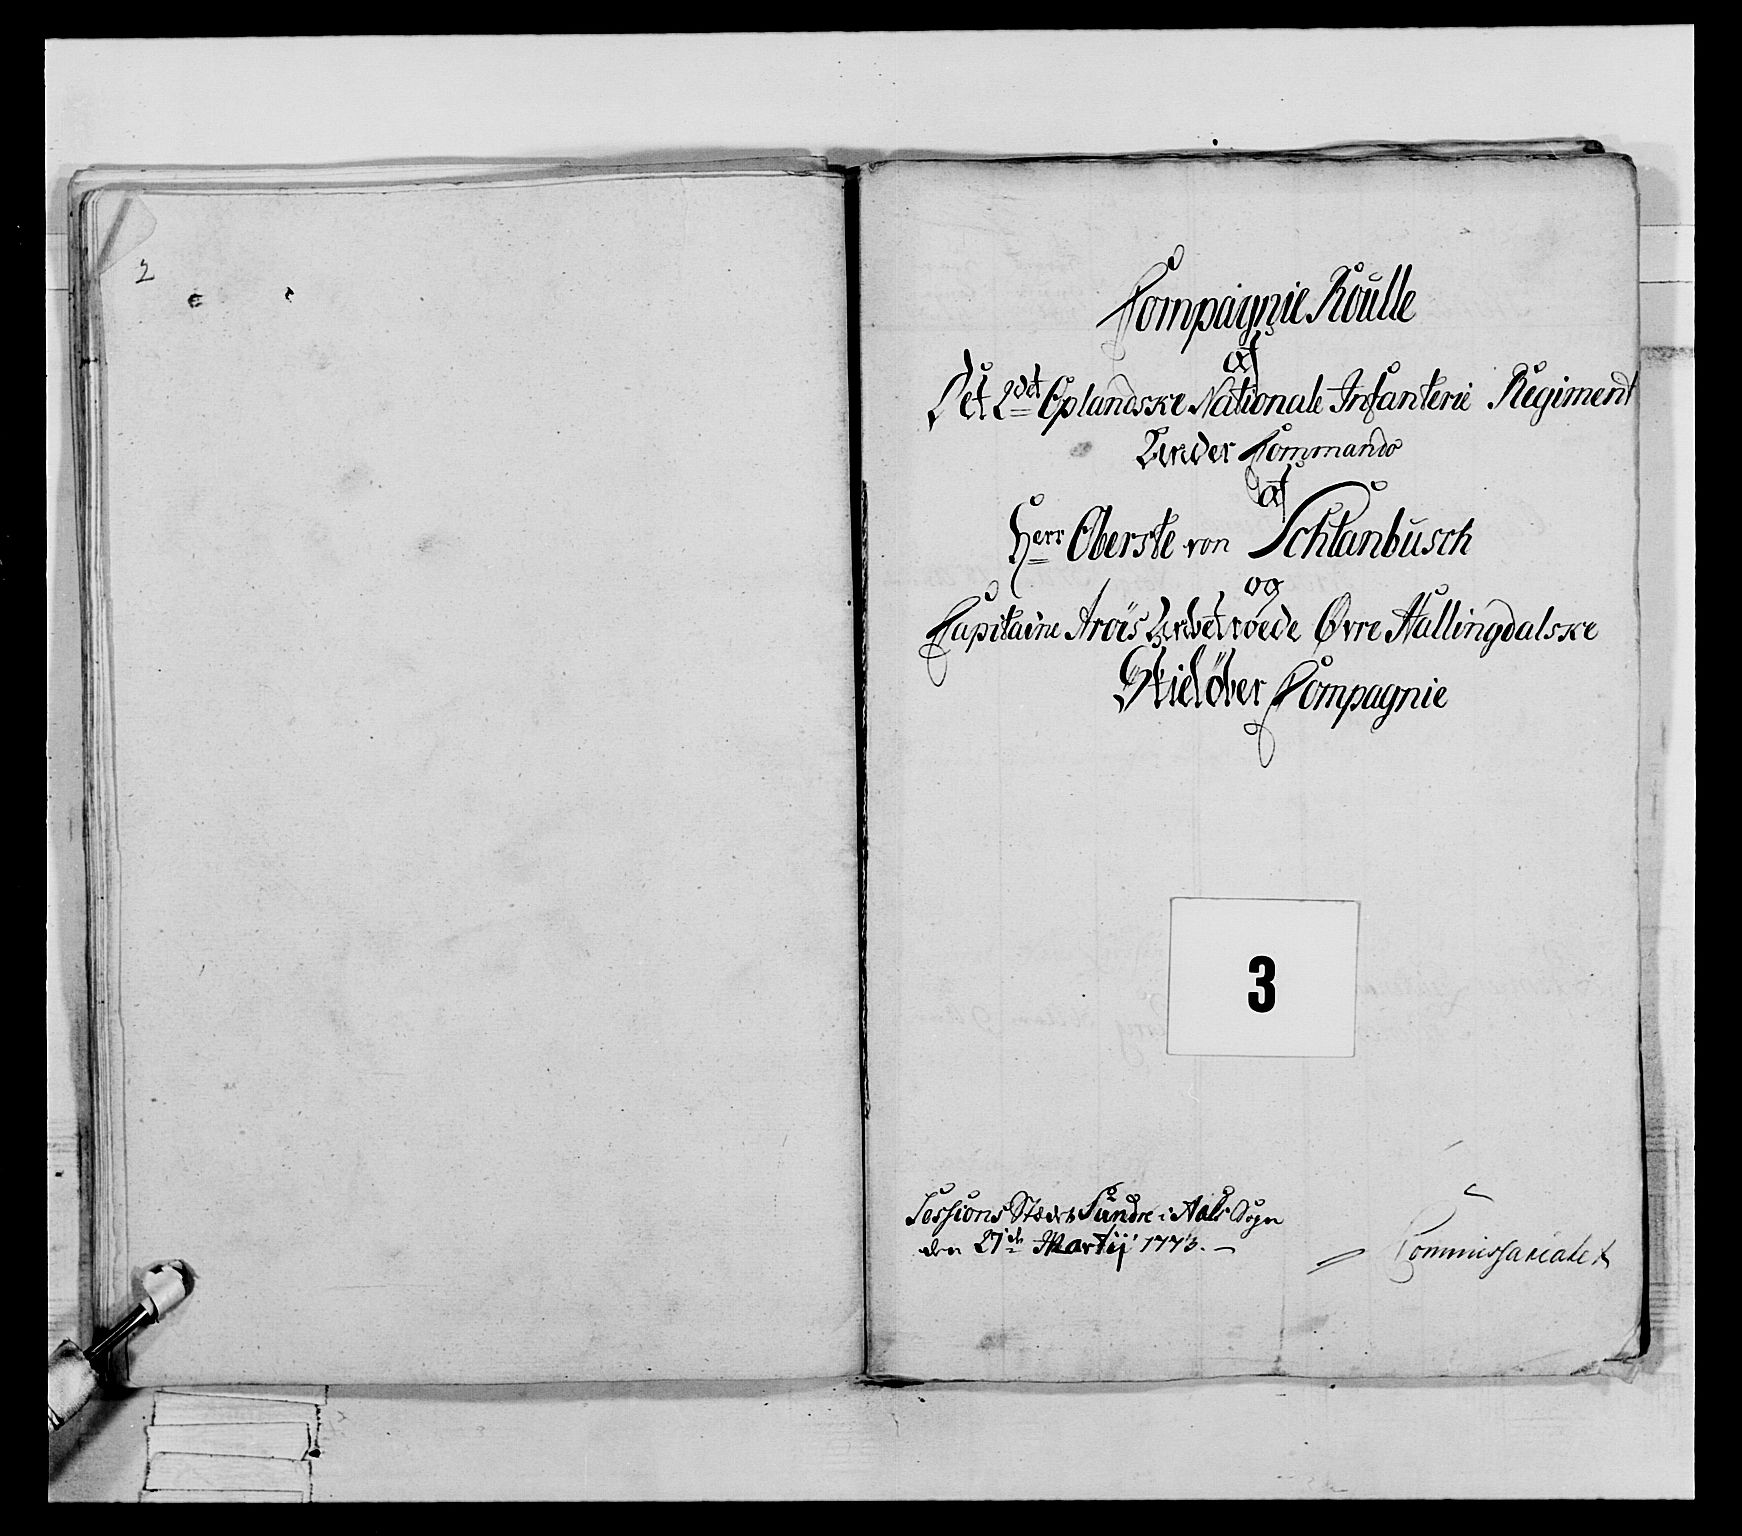 2
Compagnie Roulle
af
Det 2det Oplandske Nationale Infanterie Regiment
Under Commando
af
Herr Oberste von Schlanbusch
og
Capitaine Arøes Underhavende Øvre Hallingdalske
Skieløber Compagnie
3
Sessions Stædet Sundre i Aals Sogn
den 27de Martij 1773.
Commissariatet